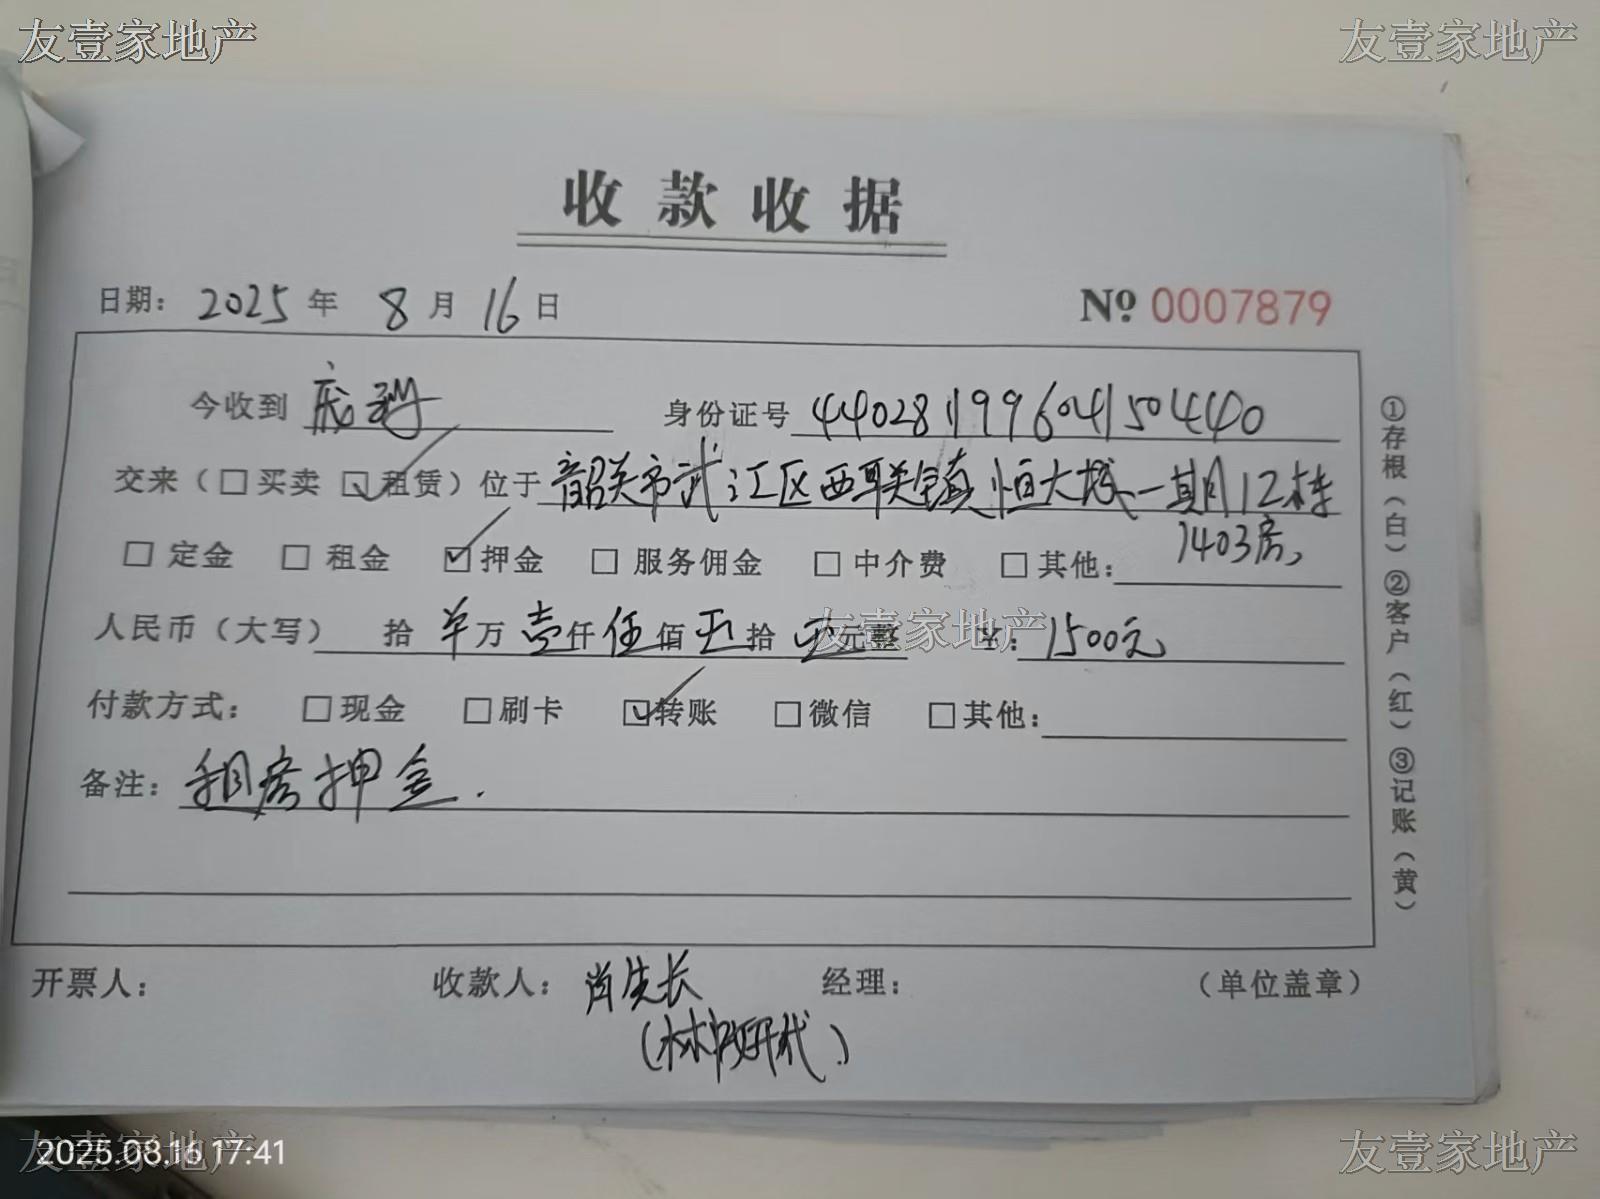 友壹家地产 友壹家地产
收款收据
日期: 2025 年 8 月 16 日 № 0007879
今收到 庞 身份证号 440281199604150440
交来（□买卖 ☑租赁）位于 韶关市武江区西联镇恒大城一期12栋
1403房
□ 定金 □ 租金 ☑押金 □ 服务佣金 □ 中介费 □ 其他:
人民币（大写） 拾 万 壹仟 伍佰 拾 元整 ¥: 1500元
友壹家地产
付款方式: □现金 □刷卡 ☑转账 □微信 □其他:
备注: 租房押金.
开票人: 收款人: 肖先长 经理: （单位盖章）
(林 代)
①存根（白）②客户（红）③记账（黄）
2025.08.16 17:41
友壹家地产 友壹家地产